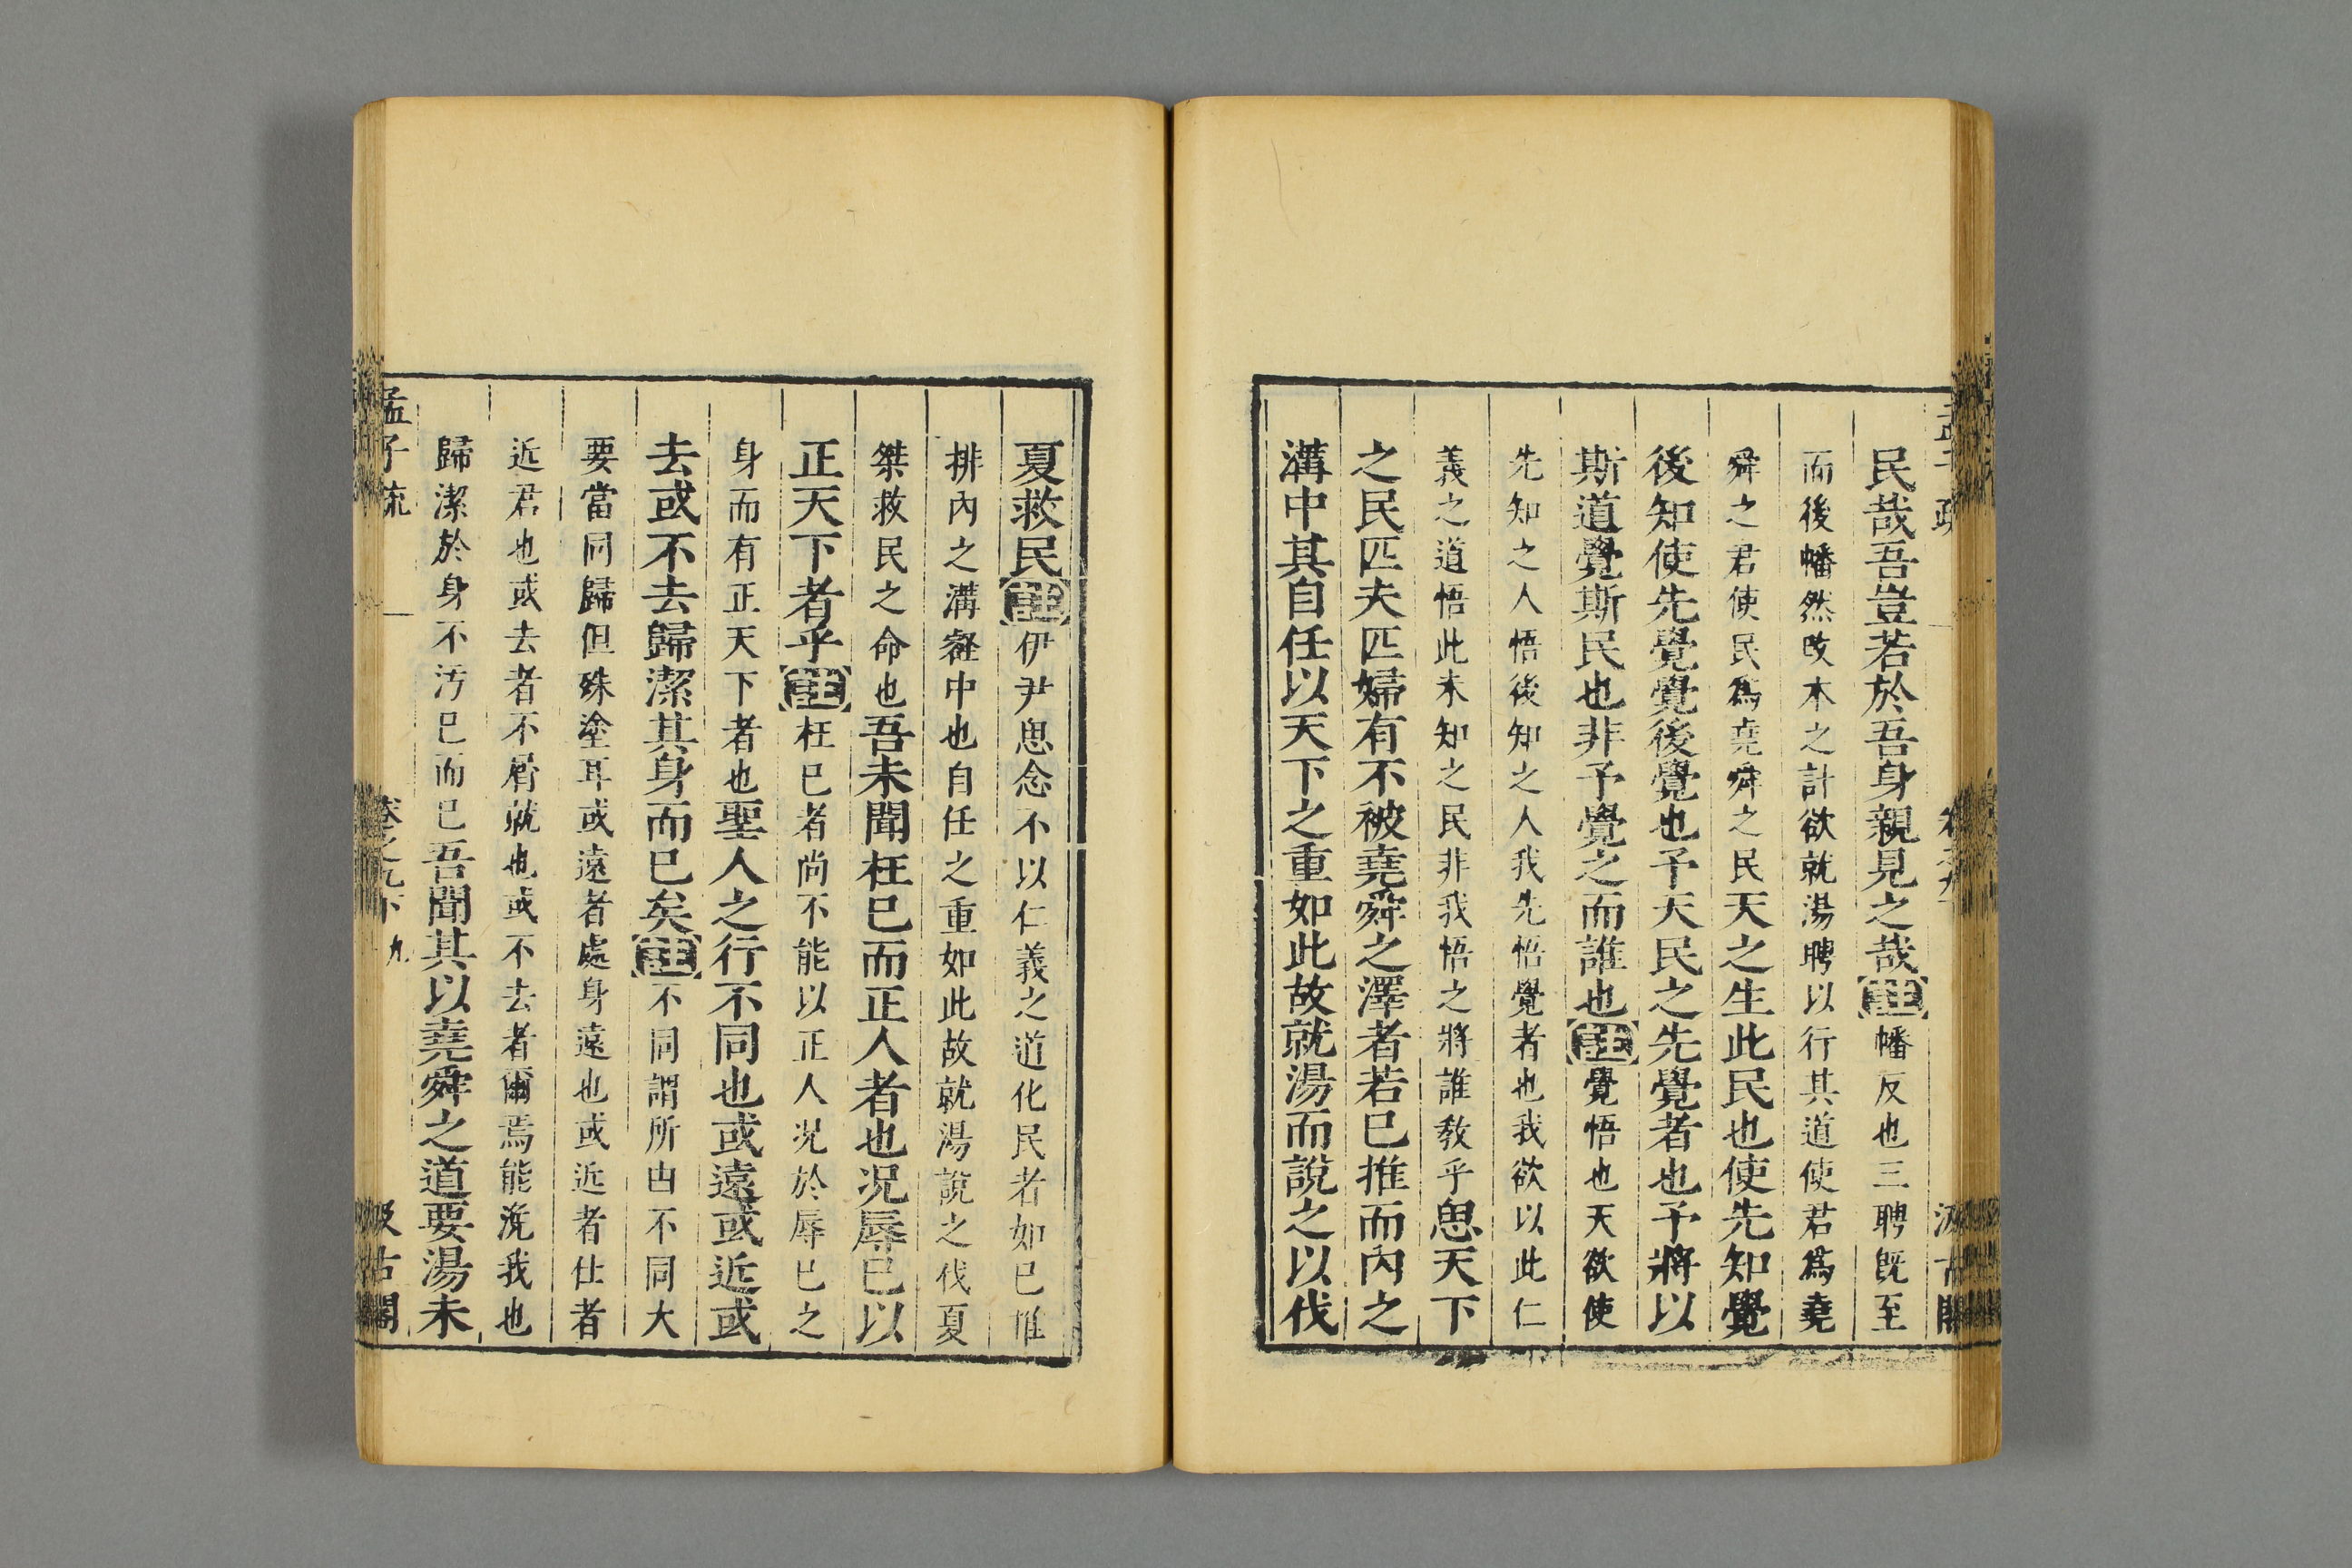 民哉吾豈若於吾身親見之哉註幡反也三聘旣至
而後幡然改本之計欲就湯聘以行其道使君爲堯
舜之君使民爲堯舜之民天之生此民也使先知覺
後知使先覺覺後覺也予天民之先覺者也予將以
斯道覺斯民也非予覺之而誰也註覺悟也天欲使
先知之人悟後知之人我先悟覺者也我欲以此仁
義之道悟此未知之民非我悟之將誰敎乎思天下
之民匹夫匹婦有不被堯舜之澤者若已推而內之
溝中其自任以天下之重如此故就湯而說之以伐
夏救民註伊尹思念不以仁義之道化民者如已惟
排內之溝壑中也自任之重如此故就湯說之伐夏
桀救民之命也吾未聞枉已而正人者也況辱已以
正天下者乎註枉已者尚不能以正人況於辱已之
身而有正天下者也聖人之行不同也或遠或近或
去或不去歸潔其身而已矣註不同謂所由不同大
要當同歸但殊塗耳或遠者處身遠也或近者仕者
近君也或去者不屑就也或不去者爾焉能浼我也
歸潔於身不汚已而已吾聞其以堯舜之道要湯未
孟子疏 卷之九下 九 汲古閣